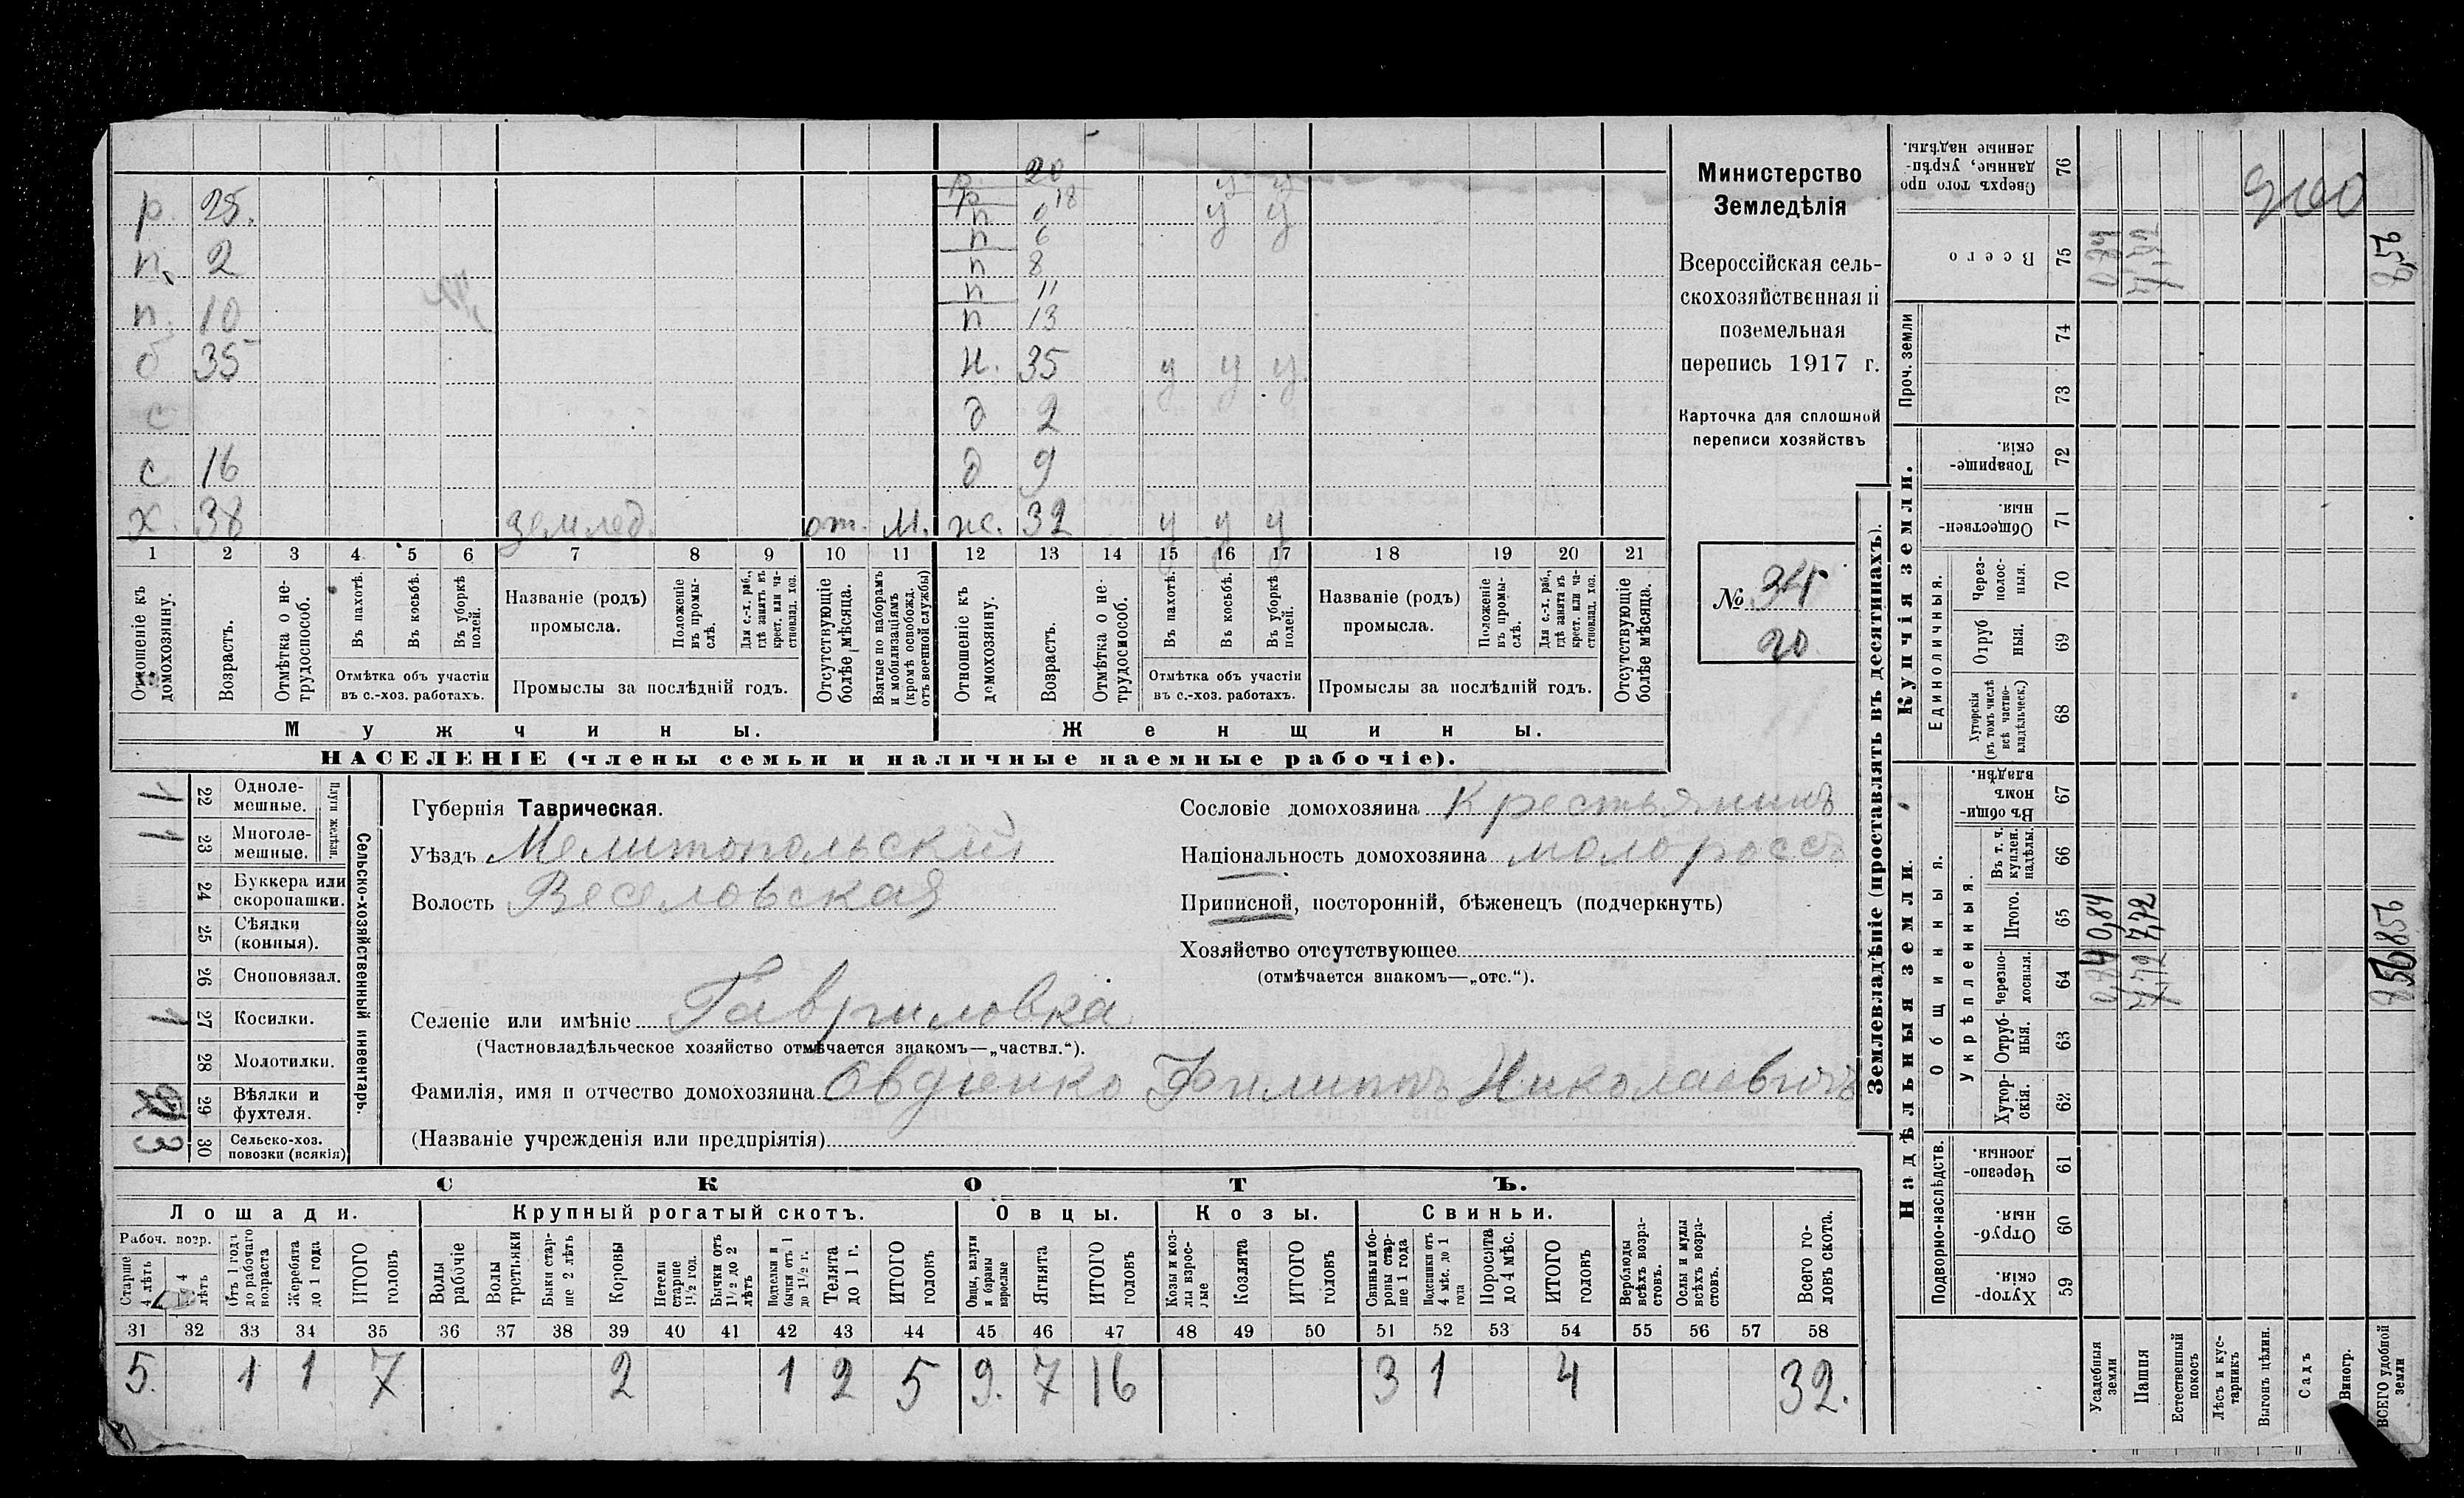 р. 25.
п. 2
п. 10
б 35
с
с 16
х. 38 землед. от. М.
р. 20
р 18 у у
п 6 у у
п 6
п 8
п 11
п 13
н. 35 у у у
д 2
д 9
ж. 32 у у у
1 2 3 4 5 6 7 8 9 10 11 12 13 14 15 16 17 18 19 20 21
Отношеніе къ домохозяину.
Возрастъ.
Отмѣтка о не-трудоспособ.
Въ пахотѣ.
Въ косьбѣ.
Въ уборкѣ полей.
Отмѣтка объ участіи
въ с.-хоз. работахъ.
Названіе (родъ)
промысла.
Положеніе въ промы-слѣ.
Для с.-х. раб., гдѣ занятъ въ крест. или ча-стновлад. хоз.
Промыслы за послѣдній годъ.
Отсутствующіе болѣе мѣсяца.
Взятые по наборамъ и мобилизаціямъ (кромѣ освобожд. отъ военной службы)
Отношеніе къ домохозяину.
Возрастъ.
Отмѣтка о не-трудоспособ.
Въ пахотѣ.
Въ косьбѣ.
Въ уборкѣ полей.
Отмѣтка объ участіи
въ с.-хоз. работахъ.
Названіе (родъ)
промысла.
Положеніе въ промы-слѣ.
Для с.-х. раб., гдѣ занята въ крест. или ча-стновлад. хоз.
Промыслы за послѣдній годъ.
Отсутствующіе болѣе мѣсяца.
Мужчины. Женщины.
НАСЕЛЕНІЕ (члены семьи и наличные наемные рабочіе).
Министерство
Земледѣлія
Всероссійская сель-
скохозяйственная и
поземельная
перепись 1917 г.
Карточка для сплошной
переписи хозяйствъ
№ 34
20
Сельско-хозяйственный инвентарь.
Плуги желѣзн.
1 22 Одноле-мешные.
1 23 Многоле-мешные.
24 Буккера или скоропашки.
25 Сѣялки (конныя).
26 Сноповязал.
1 27 Косилки.
28 Молотилки.
29 Вѣялки и фухтеля.
3 30 Сельско-хоз. повозки (всякія)
Губернія Таврическая.
Уѣздъ Мелитопольскій
Волость Веселовская
Сословіе домохозяина Крестьянинъ
Національность домохозяина малороссъ
Приписной, посторонній, бѣженецъ (подчеркнуть)
Хозяйство отсутствующее
(отмѣчается знакомъ—„отс.“).
Селеніе или имѣніе Гавриловка
(Частновладѣльческое хозяйство отмѣчается знакомъ—„частвл.“).
Фамилія, имя и отчество домохозяина Овдіенко Филиппъ Николаевичъ
(Названіе учрежденія или предпріятія)
СКОТЪ.
Лошади. Крупный рогатый скотъ. Овцы. Козы. Свиньи.
Рабоч. возр.
Старше 4 лѣтъ
До 4 лѣтъ
Отъ 1 года до рабочаго возраста
Жеребята до 1 года
ИТОГО головъ
Волы рабочіе
Волы третьяки
Быки стар-ше 2 лѣтъ
Коровы
Нетели старше 1½ год.
Бычки отъ 1½ до 2 лѣтъ
Подтелки и бычки отъ 1 до 1½ г.
Телята до 1 г.
ИТОГО головъ
Овцы, валухи и бараны взрослые
Ягнята
ИТОГО головъ
Козы и коз-лы взрос-лые
Козлята
ИТОГО головъ
Свиньи и бо-ровы стар-ше 1 года
Подсвинки отъ 4 мѣс. до 1 года
Поросята до 4 мѣс.
ИТОГО головъ
Верблюды всѣхъ возра-стовъ.
Ослы и мулы всѣхъ возра-стовъ.
Всего го-ловъ скота.
31 32 33 34 35 36 37 38 39 40 41 42 43 44 45 46 47 48 49 50 51 52 53 54 55 56 57 58
5. 1 1 7 2 1 2 5 9. 7 16 3 1 4 32.
Землевладѣніе (проставлять въ десятинахъ).
Надѣльныя земли. Купчія земли.
Подворно-наслѣдств.
Общинныя.
Укрѣпленныя.
Единоличныя.
Проч. земли
Хутор-скія. 59
Отруб-ныя. 60
Черезпо-лосныя. 61
Хутор-скія. 62
Отруб-ныя. 63
Черезпо-лосныя. 64
Итого. 65
Въ т. ч. куплен. надѣлы. 66
Въ общин-номъ владѣн. 67
Хуторскія (въ томъ числѣ всѣ частно-владѣльческ.) 68
Отруб ныя. 69
Через-полос-ныя. 70
Обществен-ныя. 71
Товарище-скія 72
73
74
Всего 75
Сверхъ того про данные, укрѣп-ленные надѣлы. 76
Усадебныя земли 0,84 0,84 0,84
Пашня 7,72 7,72 7,72
Естественный покосъ
Лѣсъ и кус-тарникъ
Выгонъ цѣлин.
Садъ
Виногр.
ВСЕГО удобной земли 856 856 856